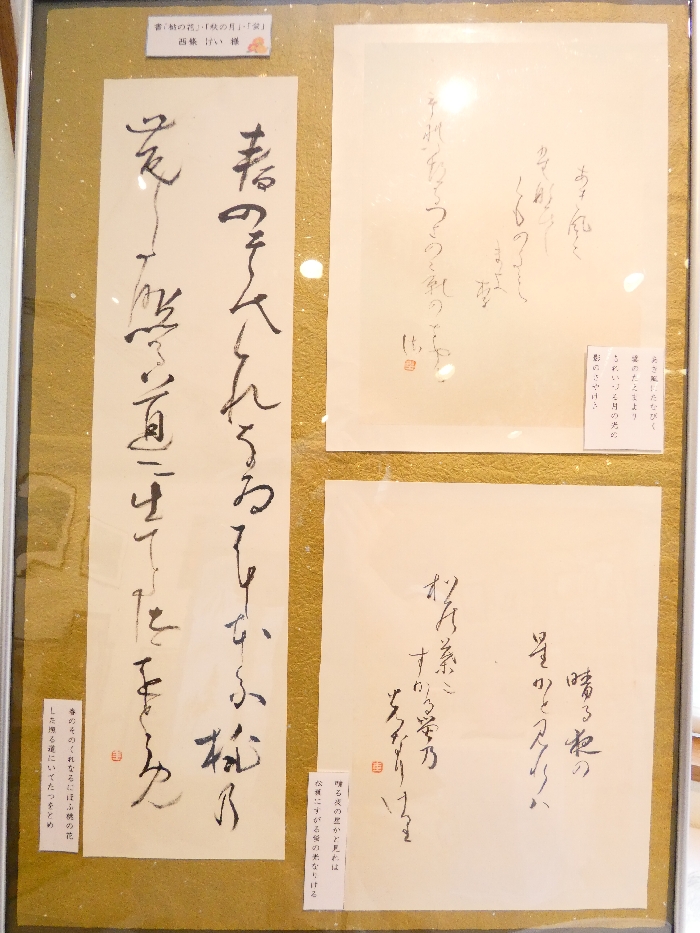 書「桃の花」・「秋の月」・「蛍」
西條 けい 様
春の其能久れな爲耳本ふ桃乃
花し多照る道二出てた徒をと免
あき風に
多那びく
くものたえ
ま与利
もれいつる つきの可希の さやけさ
あき風にたなびく
雲のたえまより
もれいづる月の光の
影のさやけさ
晴る夜の
星かと見れハ
松の葉二
すがる蛍乃
光なりける
春のそのくれなゐにほふ桃の花
した照る道にいてたつをとめ
晴る夜の星かと見れは
松葉にすがる蛍の光なりける